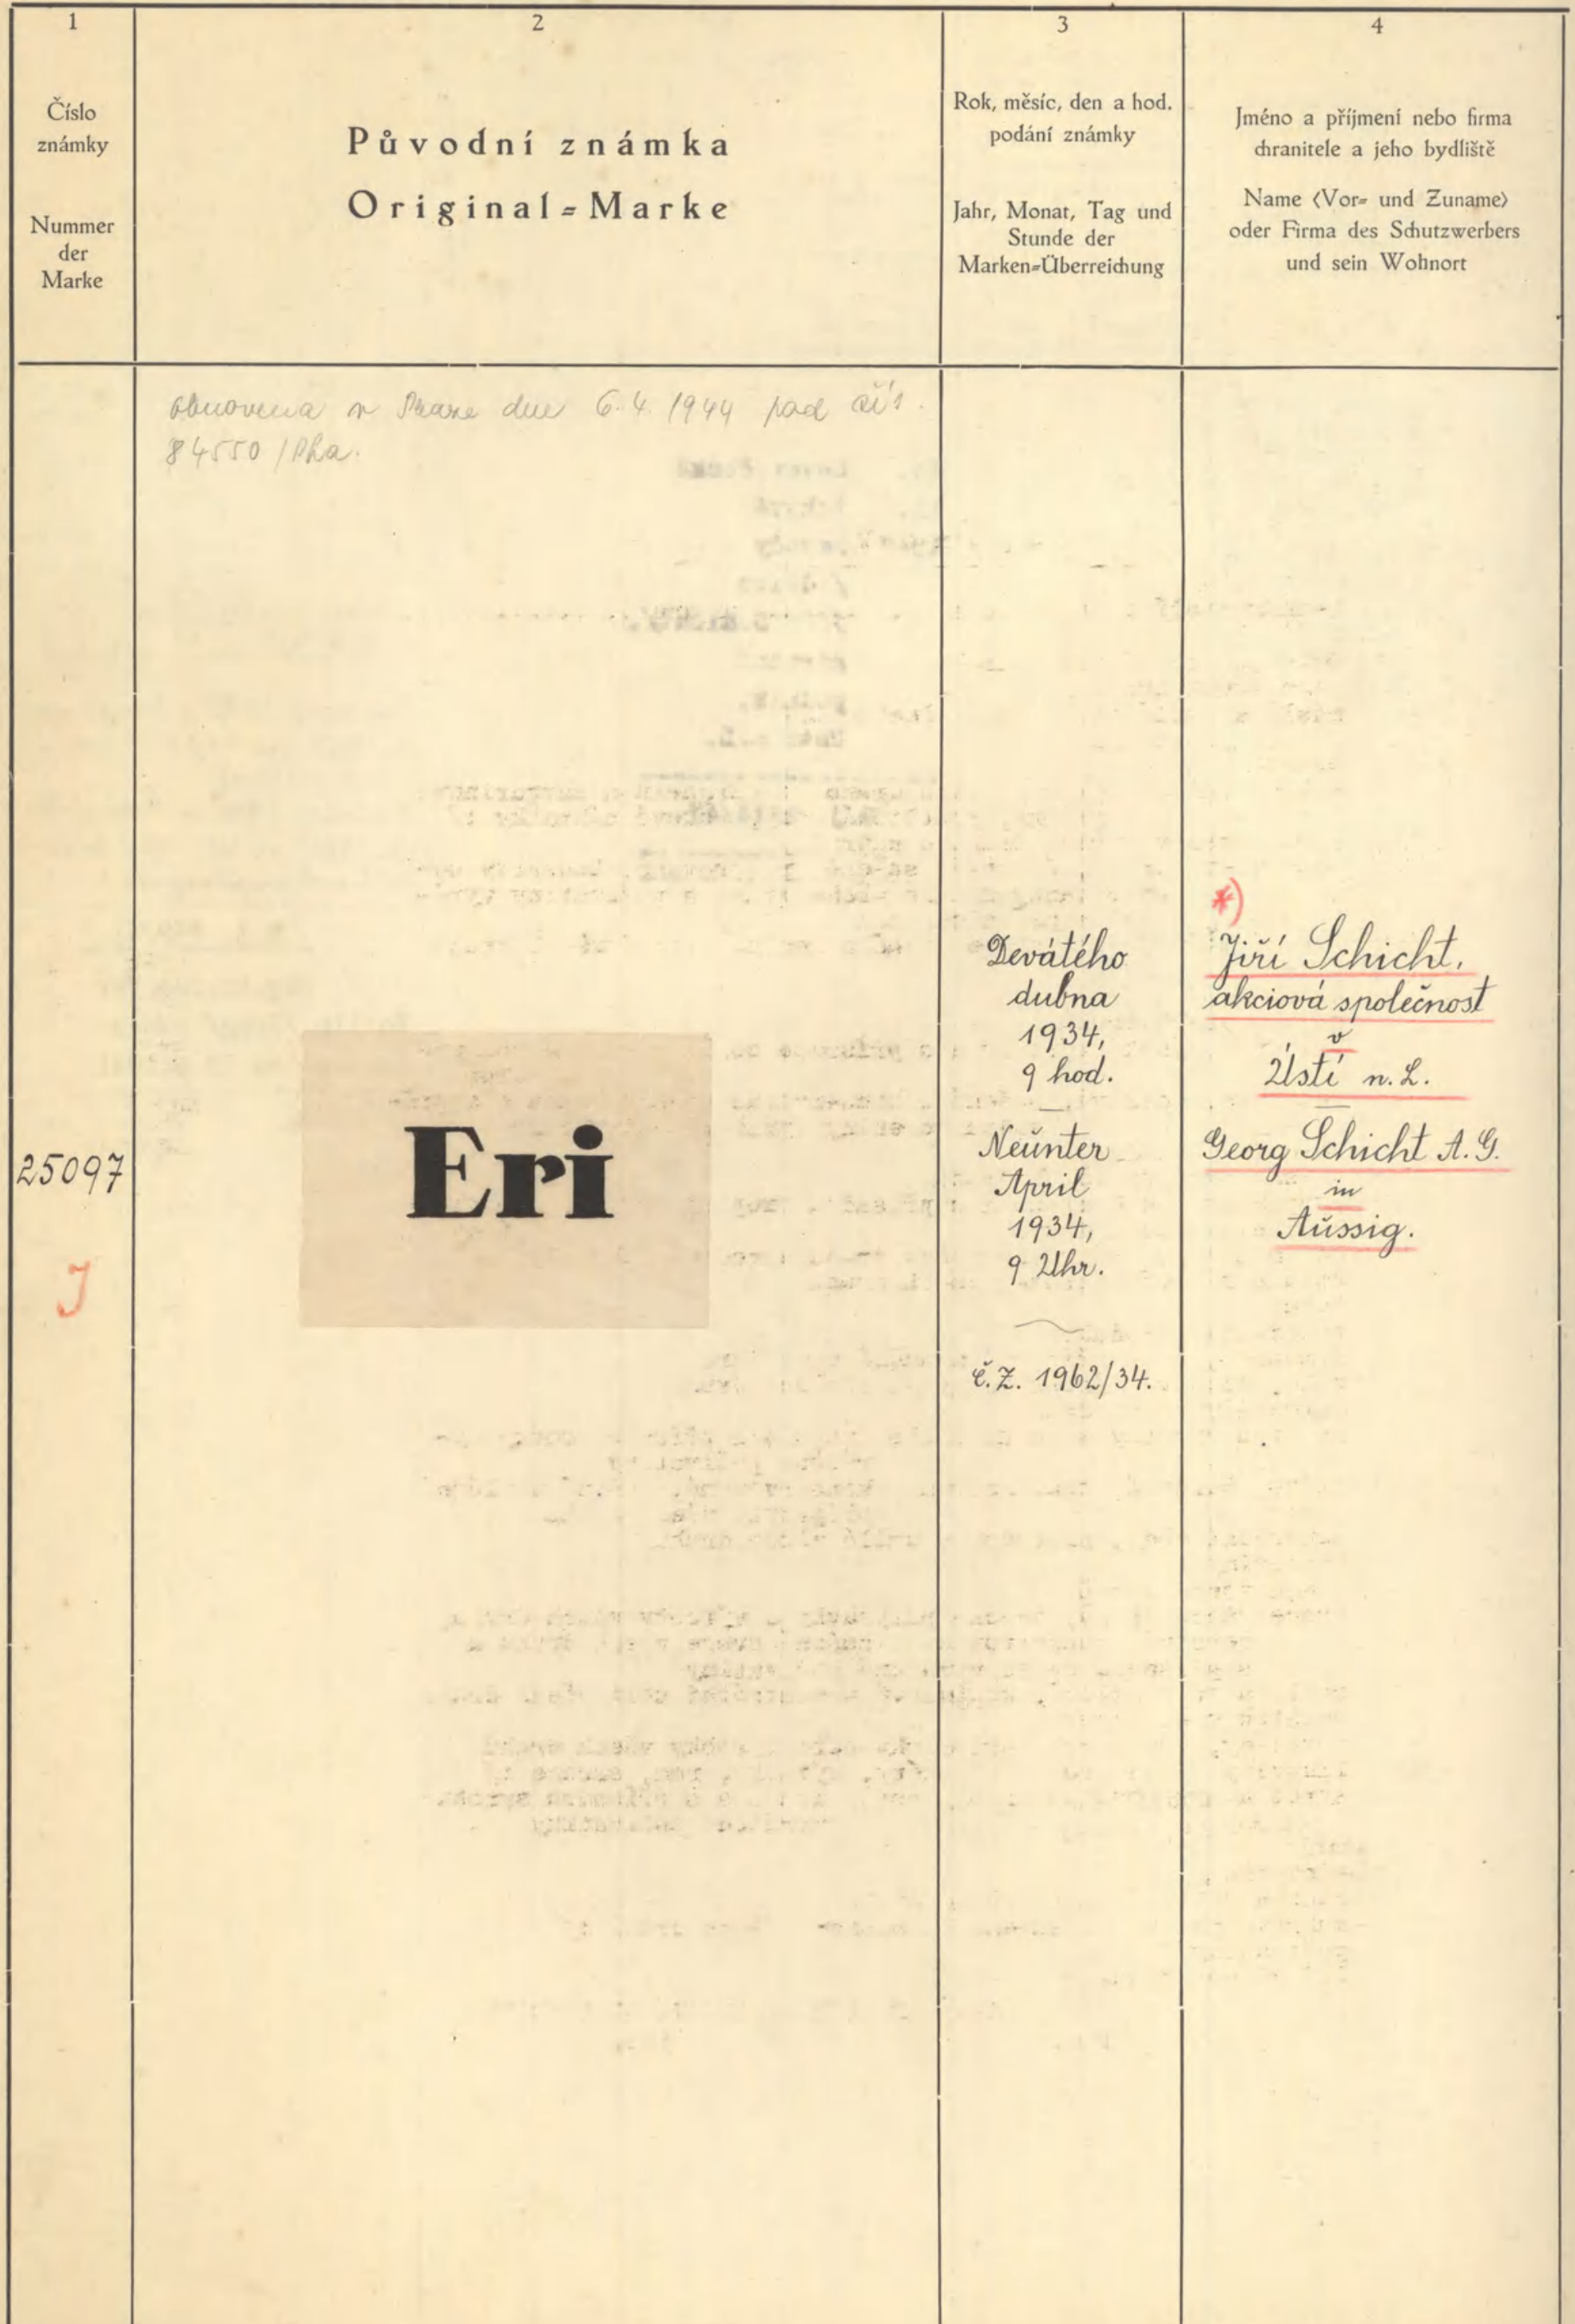 1
Číslo
známky
Nummer
der
Marke
2
Původní známka
Original=Marke
3
Rok, měsíc, den a hod.
podání známky
Jahr, Monat, Tag und
Stunde der
Marken=Überreichung
4
Jméno a příjmení nebo firma
chranitele a jeho bydliště
Name (Vor= und Zuname)
oder Firma des Schutzwerbers
und sein Wohnort
obnovena v Praze dne 6.4.1944 pod čís.
84550/Pha.
25097
J
Eri
Devátého
dubna
1934,
9 hod.
Neunter
April
1934,
9 Uhr.
č.Z. 1962/34.
*)
Jiří Schicht,
akciová společnost
v
Ústí n. L.
Georg Schicht A.G.
in
Aussig.